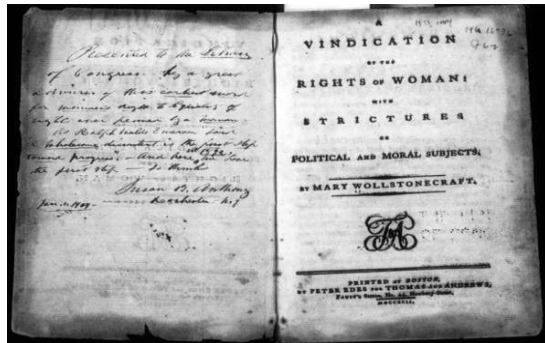 Presented to the Library
of Congress by a great
admirer of this earliest work
for woman's right to Equality of
right ever penned by a woman
As Ralph Waldo Emerson said
A wholesome discontent is the first step
toward progress. And here in 1792 we have
the first step — So think
Susan B. Anthony
Jan. 1. 1904 Rochester N.Y
A
VINDICATION
OF THE
RIGHTS OF WOMAN:
WITH
STRICTURES
ON
POLITICAL AND MORAL SUBJECTS,
BY MARY WOLLSTONECRAFT.
PRINTED AT BOSTON,
BY PETER EDES FOR THOMAS AND ANDREWS,
FAUST's Statue, No. 45, Newbury-Street,
MDCCXCII.